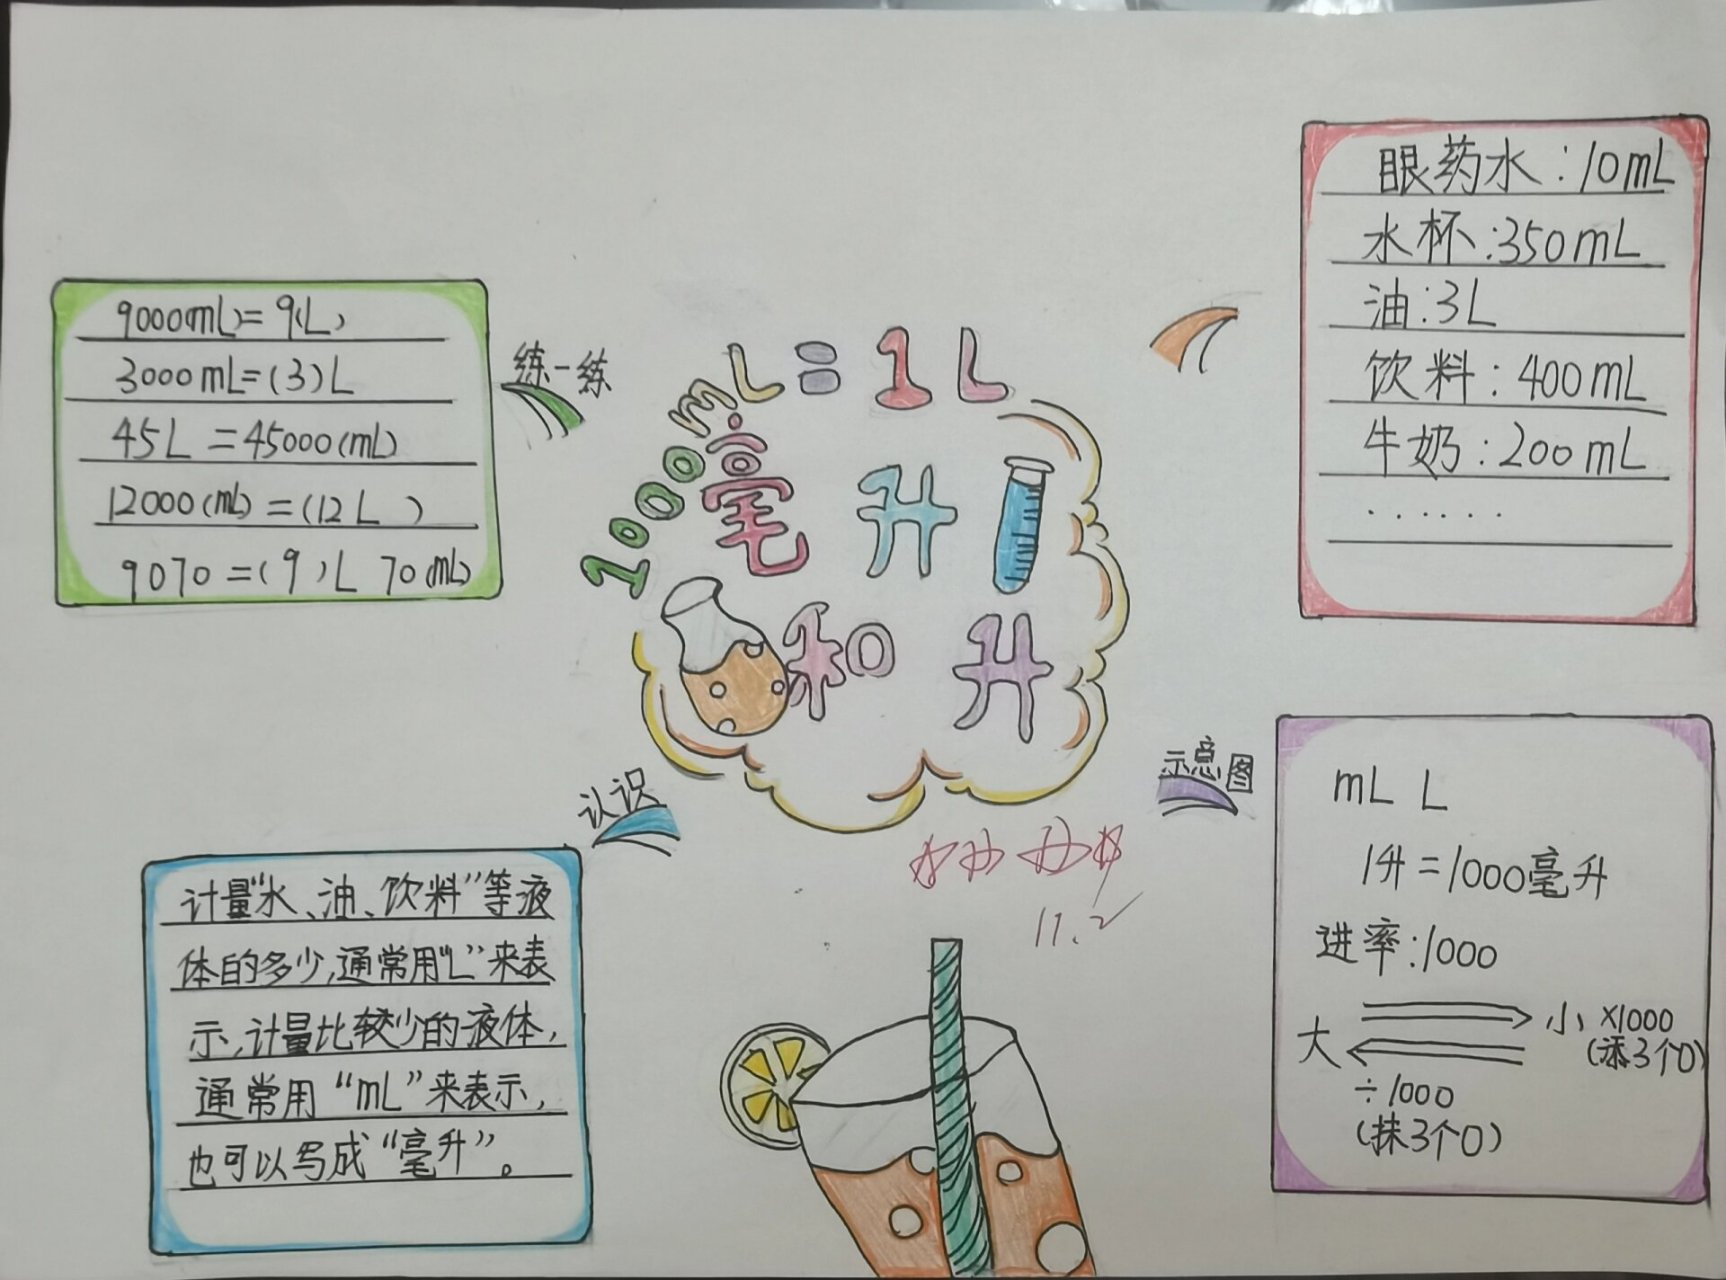 1000mL=1L
毫升
和升
练一练
9000(mL)=9(L)
3000mL=(3)L
45L=45000(mL)
12000(mL)=(12L )
9070=(9)L 70(mL)
眼药水:10mL
水杯:350mL
油:3L
饮料:400mL
牛奶:200mL
......
认识
计量“水、油、饮料”等液
体的多少,通常用“L”来表
示,计量比较少的液体,
通常用“mL”来表示,
也可以写成“毫升”。
示意图
mL L
1升=1000毫升
进率:1000
大 小 ×1000
(添3个0)
÷1000
(抹3个0)
11.2